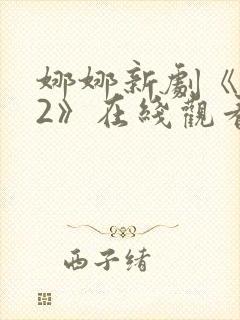 娜娜新劇《
2》在綫觀看
西子緒